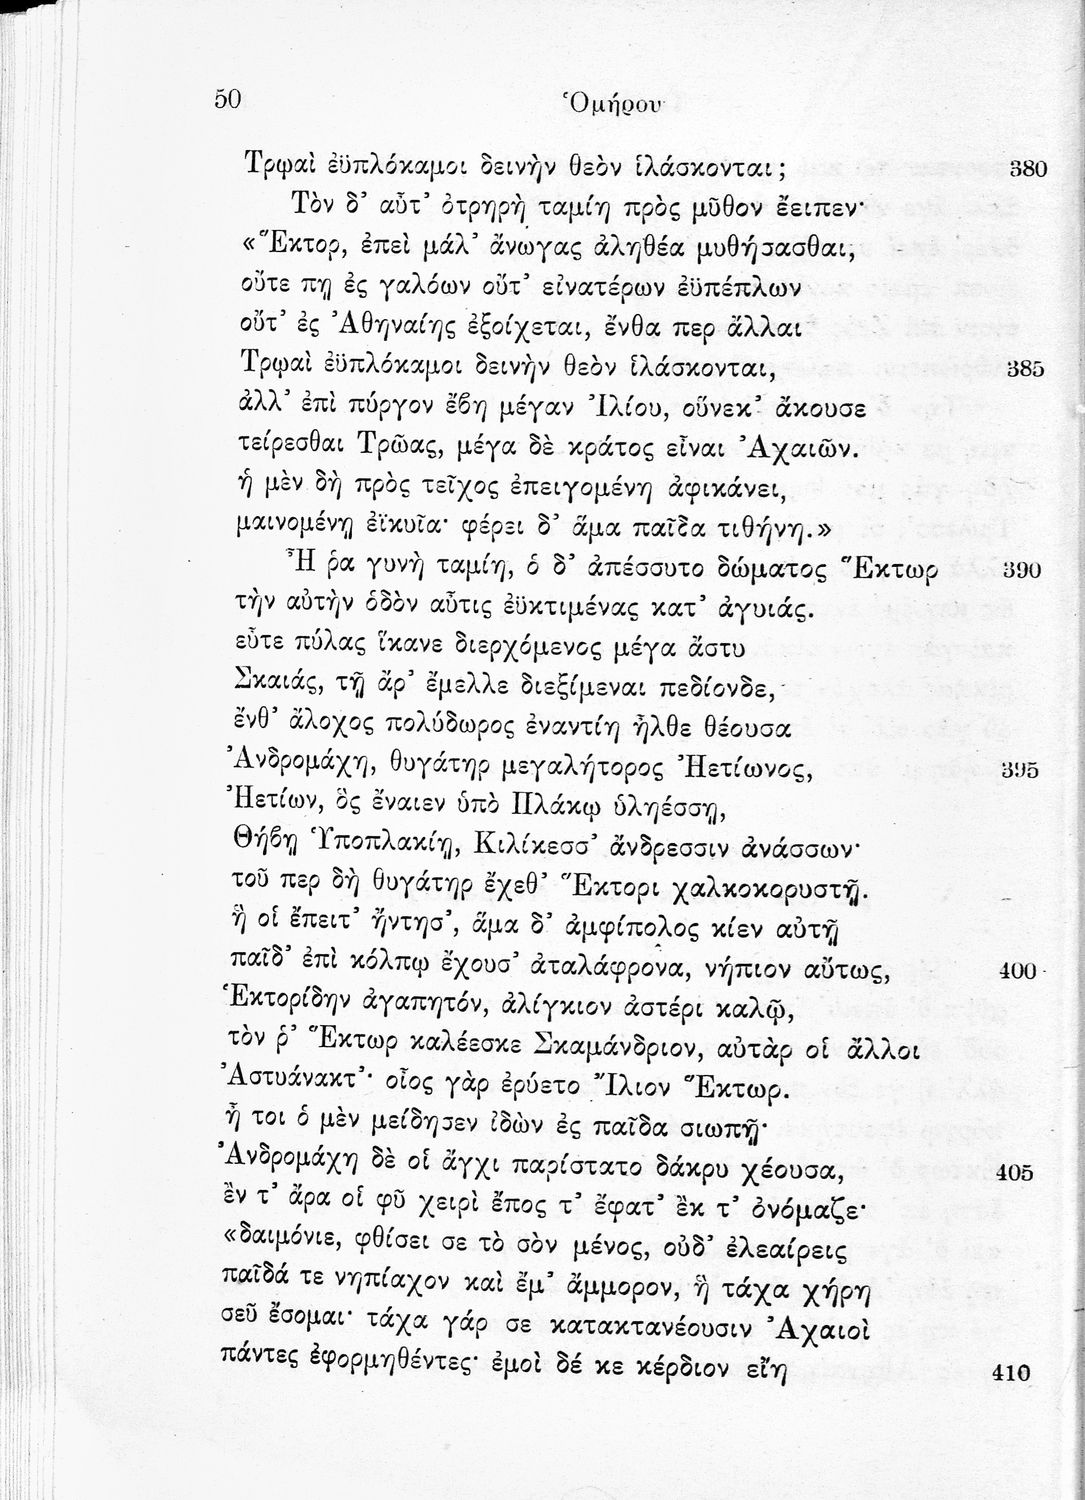 50
Ὁμήρου
Τρῳαὶ ἐϋπλόκαμοι δεινὴν θεὸν ἱλάσκονται; 380
Τὸν δ’ αὖτ’ ὀτρηρὴ ταμίη πρὸς μῦθον ἔειπεν·
«Ἕκτορ, ἐπεὶ μάλ’ ἄνωγας ἀληθέα μυθήσασθαι,
οὔτε πῃ ἐς γαλόων οὔτ’ εἰνατέρων ἐϋπέπλων
οὔτ’ ἐς Ἀθηναίης ἐξοίχεται, ἔνθα περ ἄλλαι
Τρῳαὶ ἐϋπλόκαμοι δεινὴν θεὸν ἱλάσκονται, 385
ἀλλ’ ἐπὶ πύργον ἔβη μέγαν Ἰλίου, οὕνεκ’ ἄκουσε
τείρεσθαι Τρῶας, μέγα δὲ κράτος εἶναι Ἀχαιῶν.
ἡ μὲν δὴ πρὸς τεῖχος ἐπειγομένη ἀφικάνει,
μαινομένῃ ἐϊκυῖα· φέρει δ’ ἅμα παῖδα τιθήνη.»
Ἦ ῥα γυνὴ ταμίη, ὁ δ’ ἀπέσσυτο δώματος Ἕκτωρ 390
τὴν αὐτὴν ὁδὸν αὖτις ἐϋκτιμένας κατ’ ἀγυιάς.
εὖτε πύλας ἵκανε διερχόμενος μέγα ἄστυ
Σκαιάς, τῇ ἄρ’ ἔμελλε διεξίμεναι πεδίονδε,
ἔνθ’ ἄλοχος πολύδωρος ἐναντίη ἦλθε θέουσα
Ἀνδρομάχη, θυγάτηρ μεγαλήτορος Ἠετίωνος, 395
Ἠετίων, ὃς ἔναιεν ὑπὸ Πλάκῳ ὑληέσσῃ,
Θήβῃ Ὑποπλακίῃ, Κιλίκεσσ’ ἄνδρεσσιν ἀνάσσων·
τοῦ περ δὴ θυγάτηρ ἔχεθ’ Ἕκτορι χαλκοκορυστῇ.
ἥ οἱ ἔπειτ’ ἤντησ’, ἅμα δ’ ἀμφίπολος κίεν αὐτῇ
παῖδ’ ἐπὶ κόλπῳ ἔχουσ’ ἀταλάφρονα, νήπιον αὔτως, 400
Ἑκτορίδην ἀγαπητόν, ἀλίγκιον ἀστέρι καλῷ,
τόν ῥ’ Ἕκτωρ καλέεσκε Σκαμάνδριον, αὐτὰρ οἱ ἄλλοι
Ἀστυάνακτ’· οἶος γὰρ ἐρύετο Ἴλιον Ἕκτωρ.
ἦ τοι ὁ μὲν μείδησεν ἰδὼν ἐς παῖδα σιωπῇ·
Ἀνδρομάχη δὲ οἱ ἄγχι παρίστατο δάκρυ χέουσα, 405
ἒν τ’ ἄρα οἱ φῦ χειρὶ ἔπος τ’ ἔφατ’ ἒκ τ’ ὀνόμαζε·
«δαιμόνιε, φθίσει σε τὸ σὸν μένος, οὐδ’ ἐλεαίρεις
παῖδά τε νηπίαχον καὶ ἔμ’ ἄμμορον, ἣ τάχα χήρη
σεῦ ἔσομαι· τάχα γάρ σε κατακτανέουσιν Ἀχαιοὶ
πάντες ἐφορμηθέντες· ἐμοὶ δέ κε κέρδιον εἴη 410